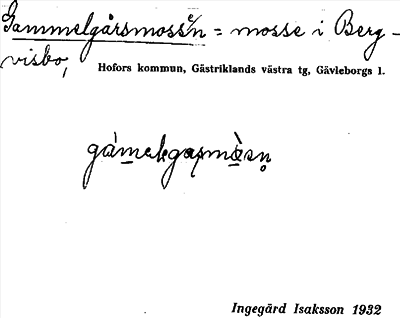 Gammelgårsmossen = mosse i Berg-
visbo,
Hofors kommun, Gästriklands västra tg, Gävleborgs l.
Ingegärd Isaksson 1932